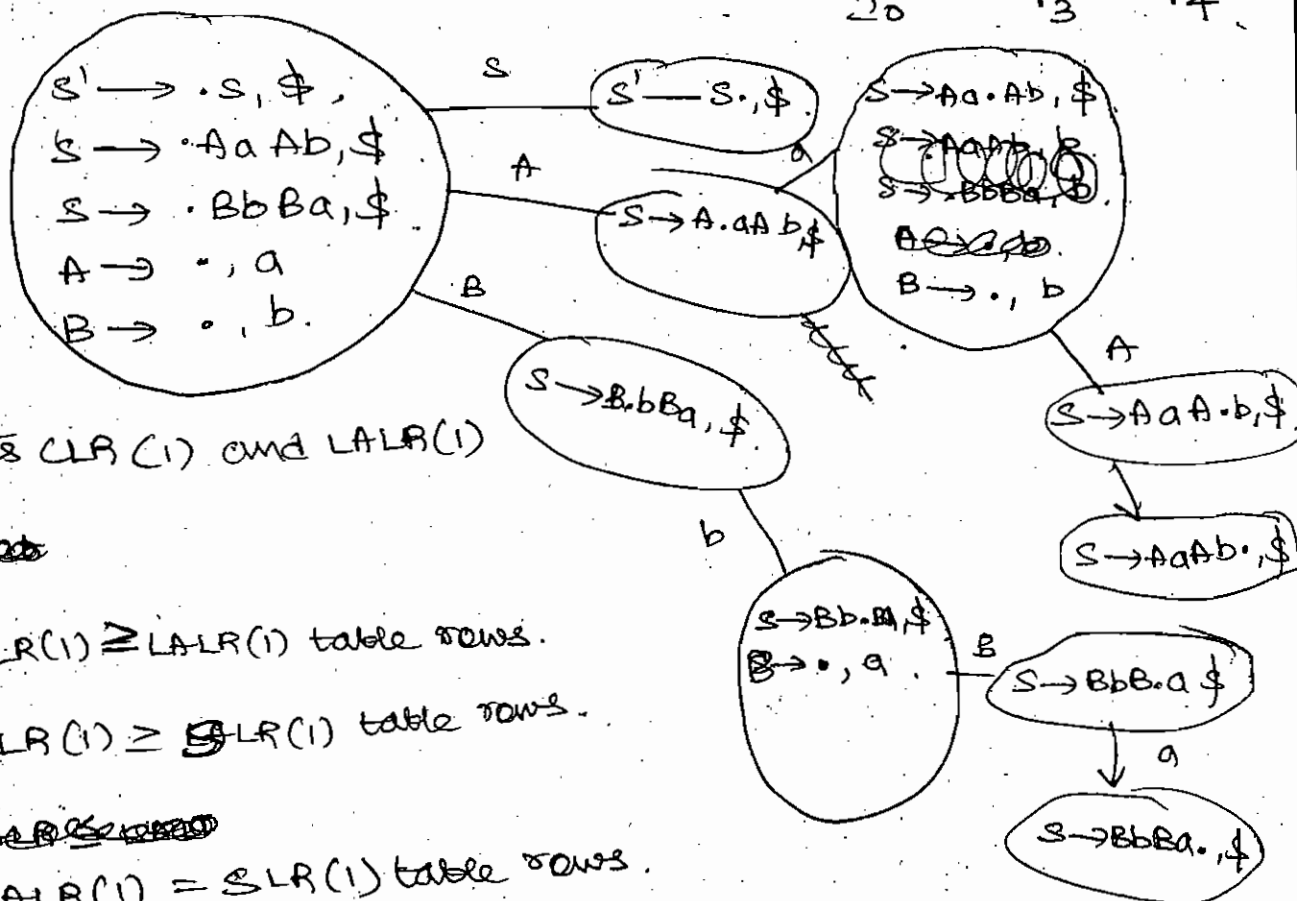 20 13 14
S' → .S, $,
S → .AaAb, $
S → .BbBa, $
A → ., a
B → ., b.
S
S' — S., $
A
S → A.aAb, $
a
S → Aa.Ab, $
S → AaAb, b
S → .BbBa, b
B → ., b
A
S → AaA.b, $.
S → AaAb., $
B
S → B.bBa, $.
b
S → Bb.Ba, $
B → ., a.
B
S → BbB.a $
a
S → BbBa., $
s CLR (1) and LALR(1)
LR(1) ≥ LALR(1) table rows.
LR (1) ≥ SLR(1) table rows.
ALR(1) = SLR(1) table rows.